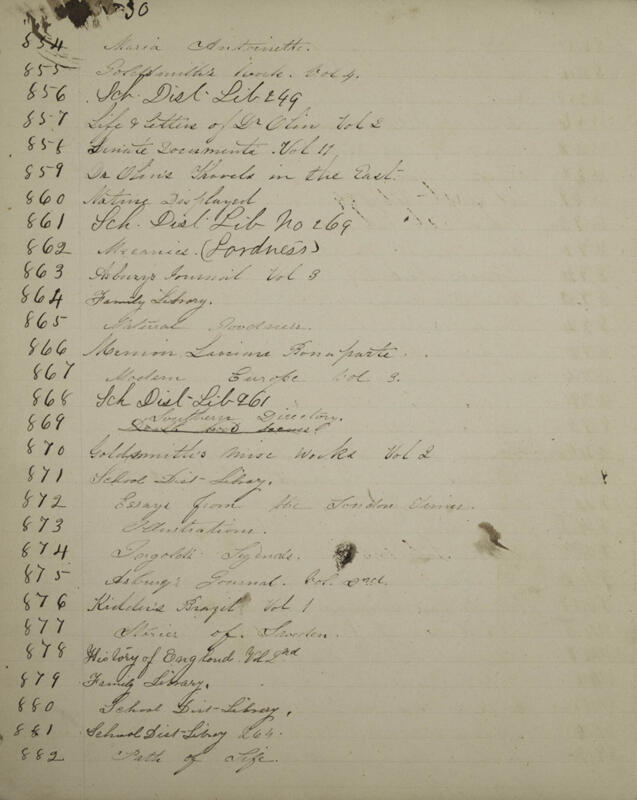 30
854 Maria Antoinette.
855 Goldsmith's Work. Vol 4.
856 Sch. Dist. Lib 249
857 Life & Letters of Dr Olin Vol 2
858 Senate Documents. Vol 11
859 Dr Olin's Travels in the East.
860 Nature Displayed
861 Sch. Dist Lib No 269
862 Mecanics. (Lardness)
863 Asbury's Journal Vol 3
864 Family Library.
865 Natural Goodness.
866 Memior Luciane Bonaparte.
867 Modern Europe Vol 3.
868 Sch Dist-Lib 261
869 Southern Directory.
870 Goldsmith's Misc Works Vol 2
871 School Dist-Library.
872 Essays from the London Times.
873 Illustrations.
874 Ingoldi Legends.
875 Asbury's Journal. Vol. 2nd.
876 Kidder's Brazil Vol 1
877 Stories of Sweden.
878 History of England. Vol 2nd
879 Family Library.
880 School Dist-Library.
881 School Dist-Libray 264.
882 Path of Life.